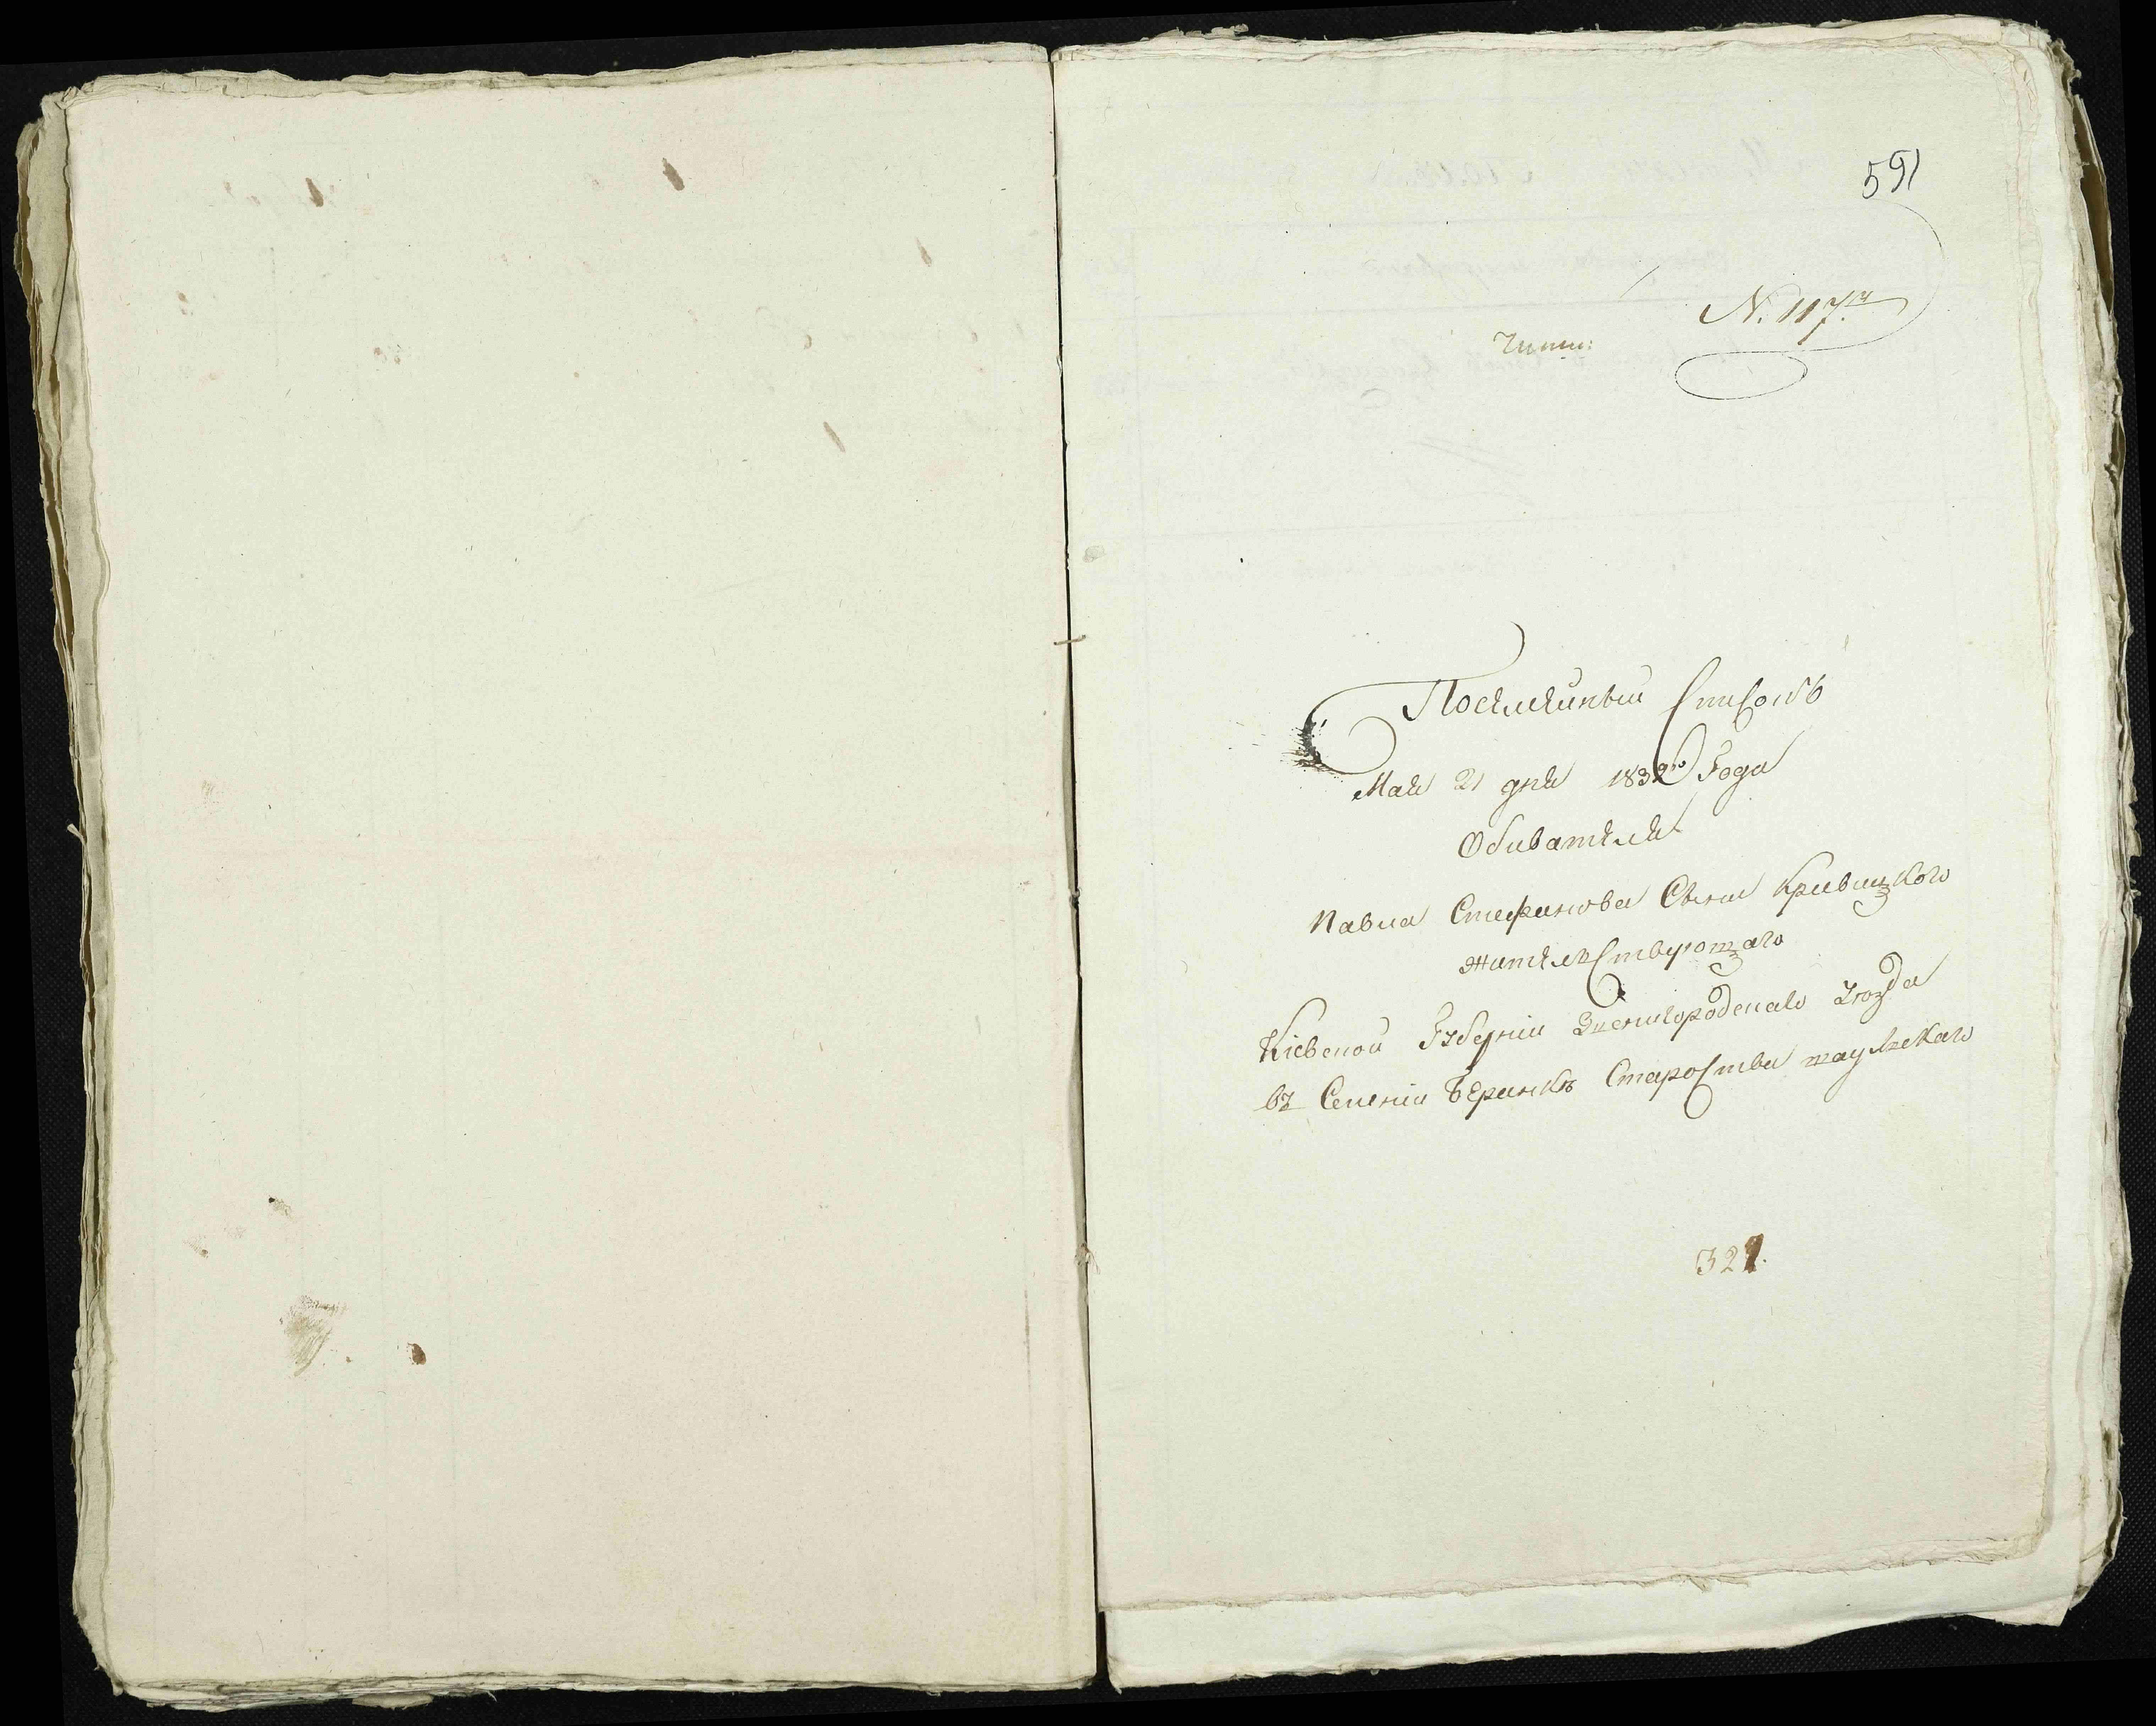 591
N. 117й
Посемейный Списокъ
Мая 21 дня 1832го Года
Обивателя
Павла Стефанова Сына Кривицкого
жительствующаго
Кіевской Губерніи Звенигородскаго уезда
въ Селеніи
Староства
321.